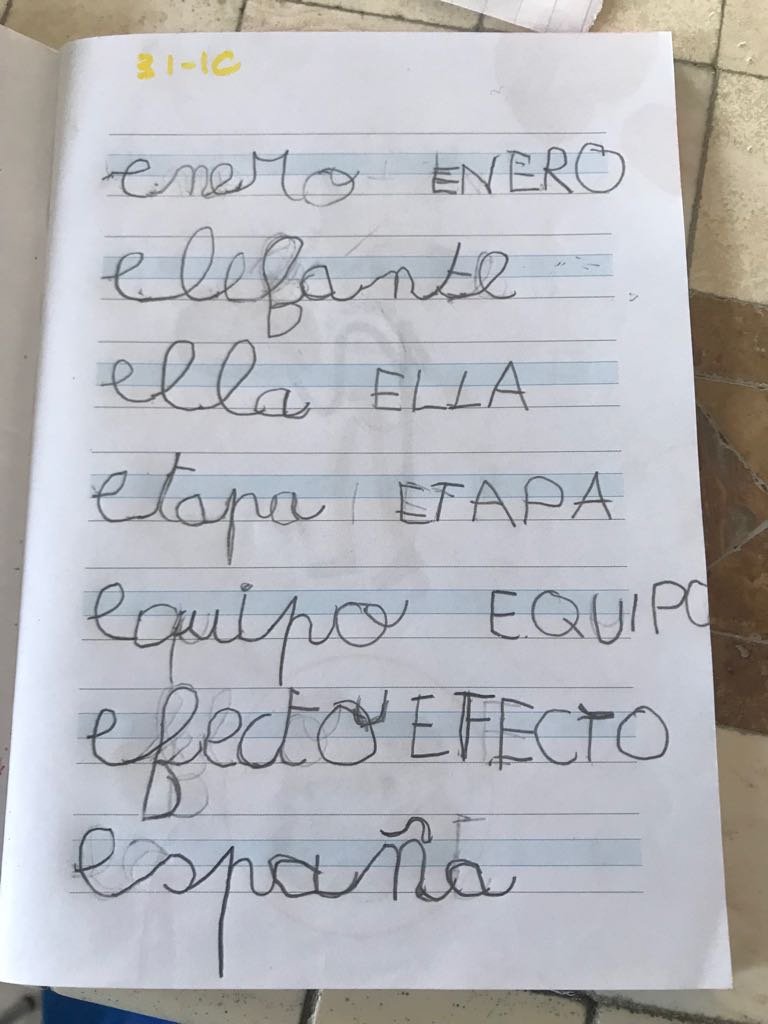 31-1C
enero ENERO
elefante
ella ELLA
etapa ETAPA
equipo EQUIPO
efecto EFECTO
españa